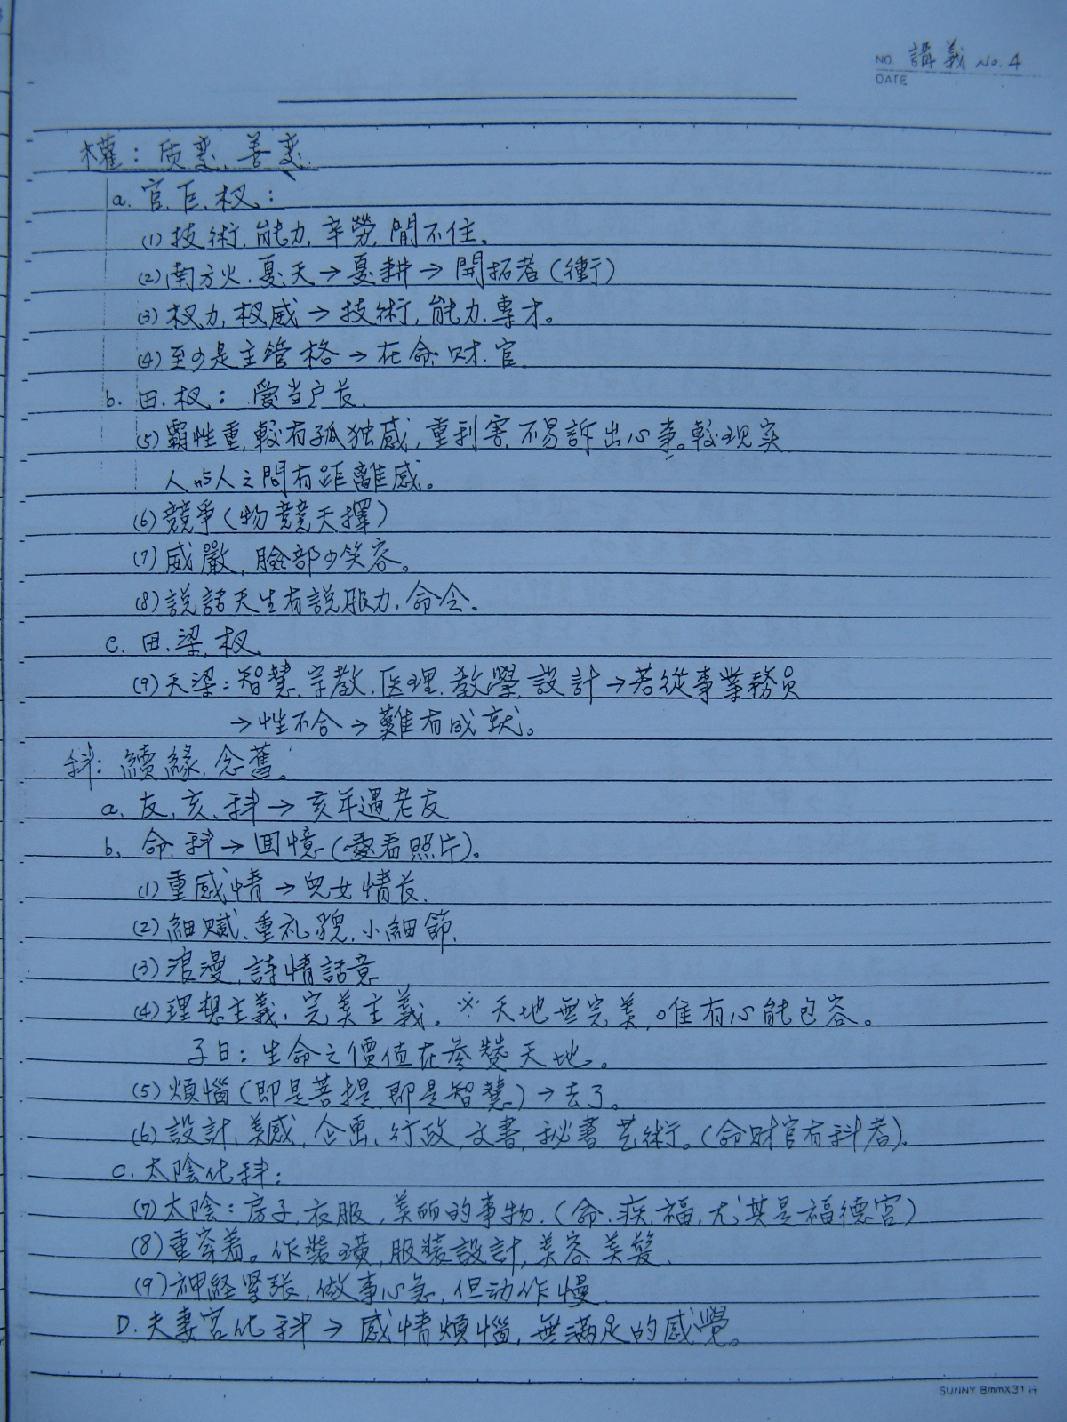 NO. 講義 No.4
DATE
權：质变、善变.
a. 官.巨.权：
(1) 技術.能力.辛勞.閒不住.
(2) 南方火.夏天→夏耕→開拓者(衝)
(3) 权力,权威→技術,能力.專才。
(4) 至少是主管格→在命.财.官.
b. 田.权：愛当户长
(5) 霸性重,較有孤独感,重利害,不易訴出心事。較现实
人与人之間有距離感。
(6) 競爭(物競天擇)
(7) 威嚴,臉部少笑容。
(8) 說話天生有說服力.命令.
c. 田.梁.权
(9) 天梁：智慧.宗教.医理.教學.設計→若從事業務員
→性不合→難有成就。
科：續緣.念舊.
a. 友.亥.科→亥年遇老友
b. 命.科→回憶(愛看照片)。
(1) 重感情→兒女情长.
(2) 細膩.重礼貌.小細節.
(3) 浪漫,詩情話意
(4) 理想主義.完美主義. ※天地無完美,唯有心能包容。
子曰：生命之價值在參贊天地。
(5) 煩惱(即是菩提,即是智慧)→去了。
(6) 設計.美感.企画.行政.文書.秘書.艺術。(命财官有科者).
c. 太陰化科：
(7) 太陰：房子,衣服,美丽的事物.(命.疾.福.尤其是福德宮)
(8) 重穿着。作裝璜,服装設計,美容美髮.
(9) 神経緊張,做事心急,但动作慢.
D. 夫妻宮化科→感情煩惱,無滿足的感覺。
SUNNY 8mmX31行